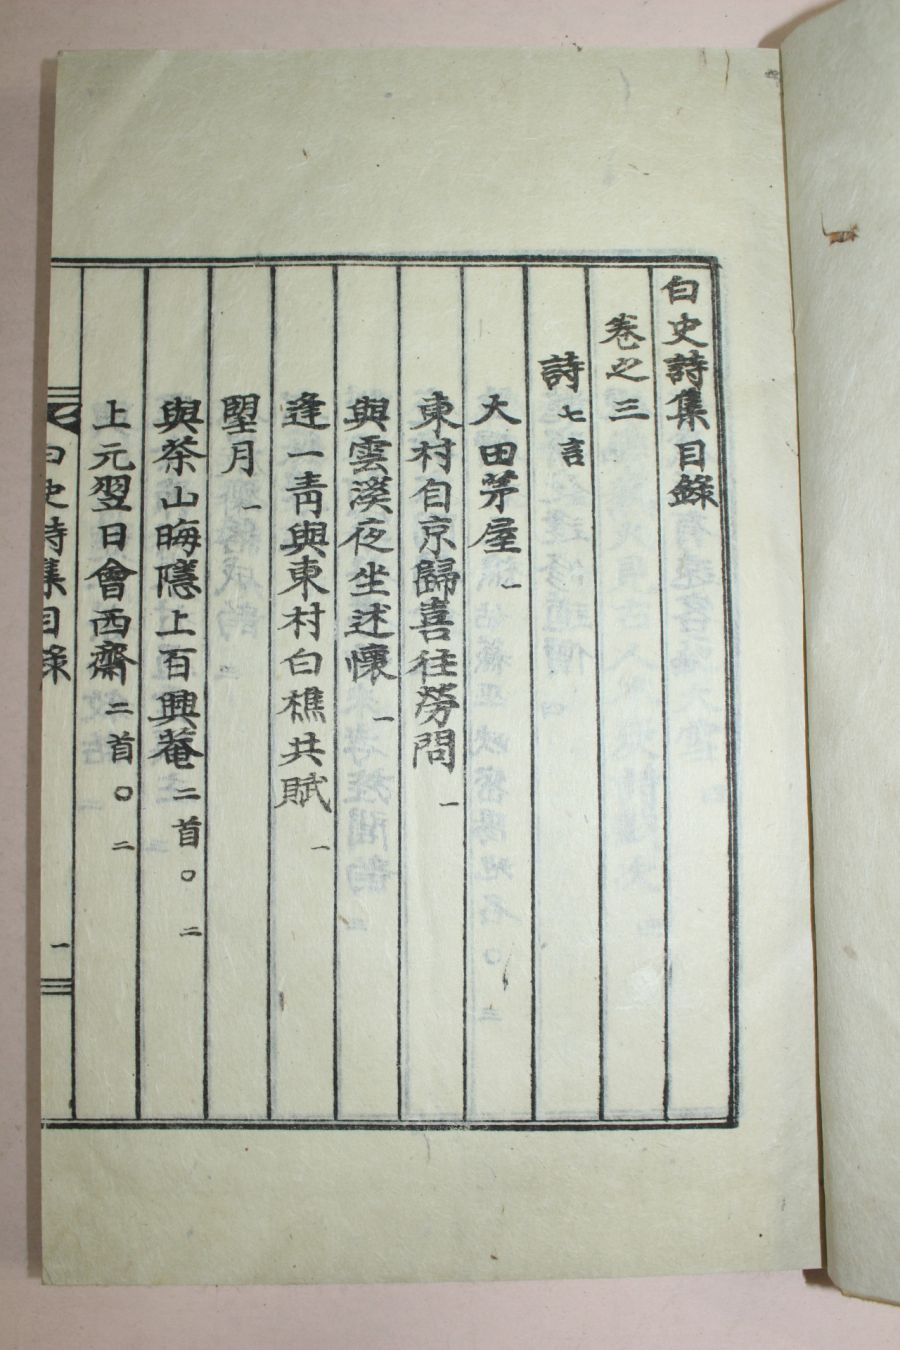 白史詩集目錄
卷之三
詩 七言
大田茅屋 一
東村自京歸喜往勞問 一
與雲溪夜坐述懷 一
逢一靑與東村白樵共賦 一
望月 一
與茶山晦隱上百興菴 二首〇 二
上元翌日會西齋 二首〇 二
白史詩集目錄 一